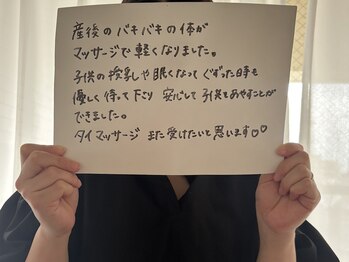 産後のバキバキの体が
マッサージで軽くなりました。
子供の授乳や眠くなってぐずった時も
優しく待って下さり 安心して子供をあやすことが
できました。
タイマッサージ また受けたいと思います♡♡